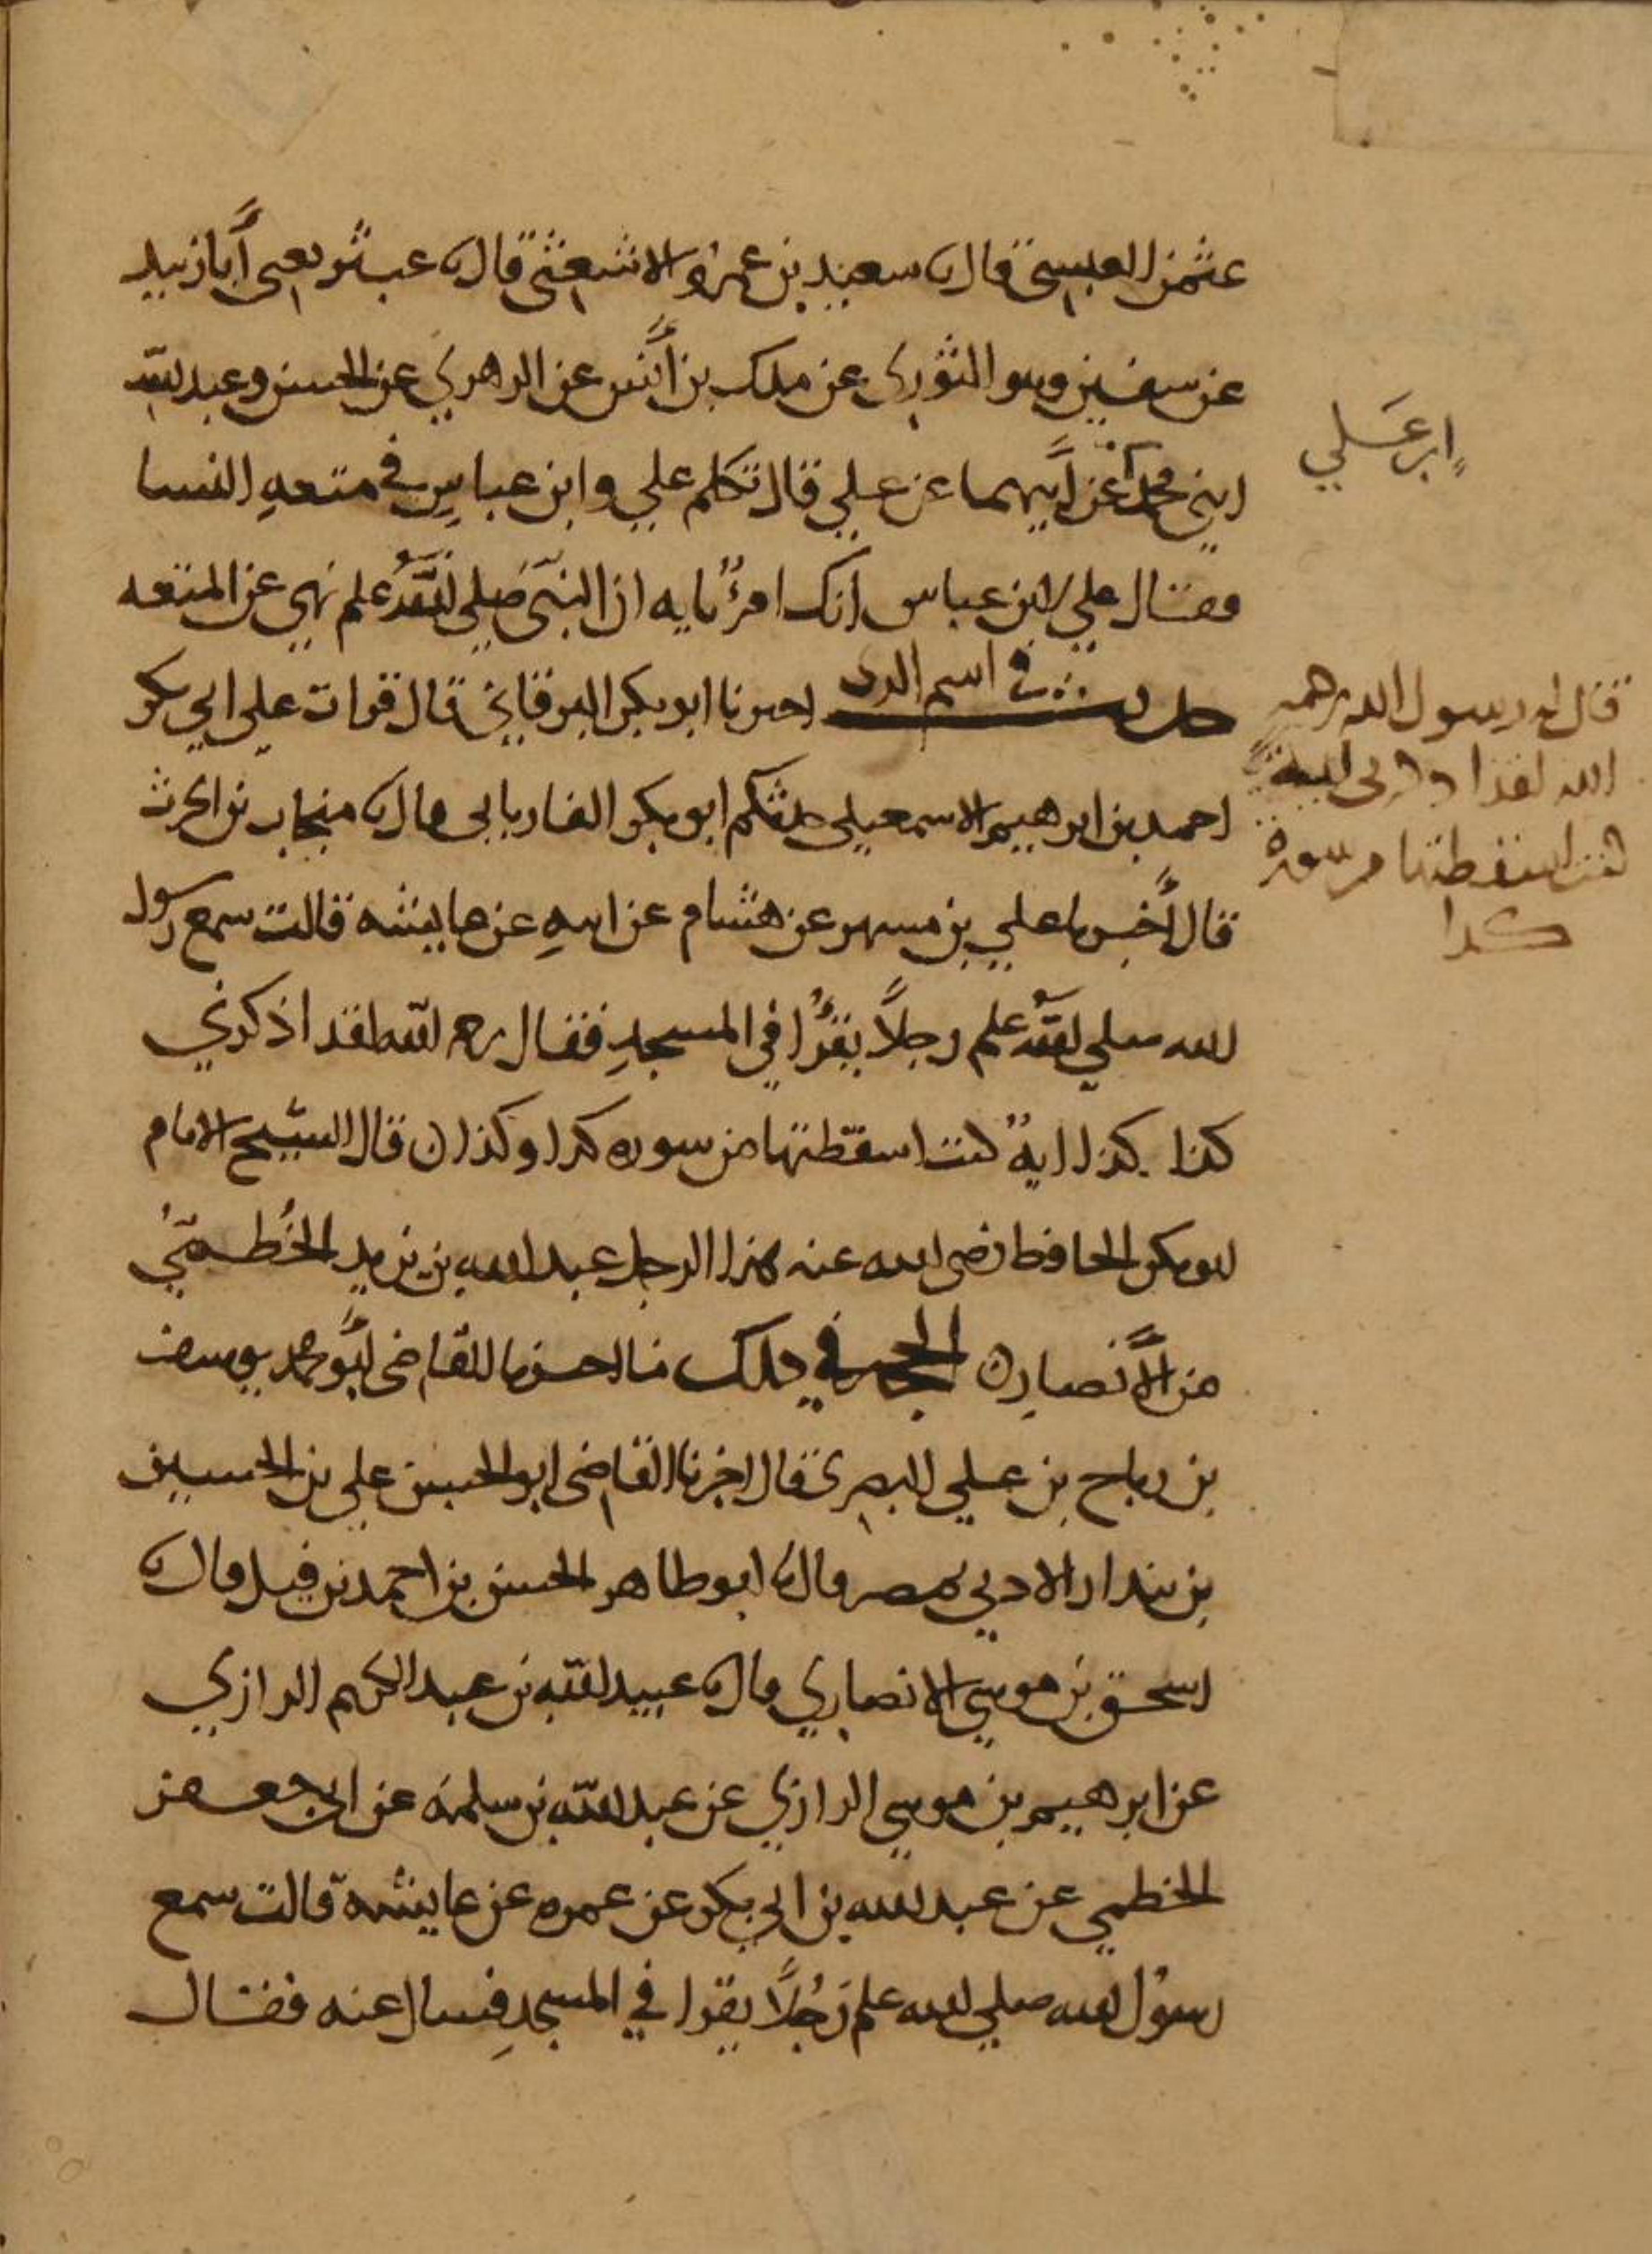 عثمن العبسي قال نا سعيد بن عمرو الاشعثي قال نا عبثر يعني أبا زبيد
عن سفين وهو الثوري عن ملك بن أنس عن الزهري عن الحسن وعبد الله
ابني محمد عن أبيهما عن علي قال تكلم علي وابن عباس في متعه النسا
فقال علي لابن عباس انك امرؤ تايه ان النبي صلى الله علم نهى عن المتعه
حديث في اسم الذي اخبرنا ابو بكر البرقاني قال قرات على ابي بكر
احمد بن ابرهيم الاسمعيلي حدثكم ابو بكر الفاريابي قال نا منجاب بن الحرث
قال أخبرنا علي بن مسهر عن هشام عن ابيه عن عايشه قالت سمع رسول
الله صلى الله علم رجلاً يقرأ في المسجد فقال رحمه الله لقد اذكرني
كذا كذا اية كنت اسقطتها من سوره كذا وكذا ن قال الشيخ الامام
ابو بكر الحافظ رضي الله عنه هذا الرجل عبد الله بن يزيد الخطمي
من الأنصار ن الحجه في ذلك ما اخبرنا القاضي أبو محمد يوسف
بن رباح بن علي البصري قال اخبرنا القاضي ابو الحسن علي بن الحسين
بن بندار الادني بمصر قال نا ابو طاهر الحسن بن احمد بن فيل قال نا
اسحق بن موسى الانصاري قال نا عبيد الله بن عبد الكريم الرازي
عن ابرهيم بن موسى الرازي عن عبد الله بن سلمه عن ابي جعفر
الخطمي عن عبد الله بن ابي بكر عن عمره عن عايشة قالت سمع
رسول الله صلى الله علم رجلاً يقرا في المسجد فسال عنه فقال
ابن علي
قال له رسول الله رحمه
الله لقد
كنت اسقطتها من سورة
كذا